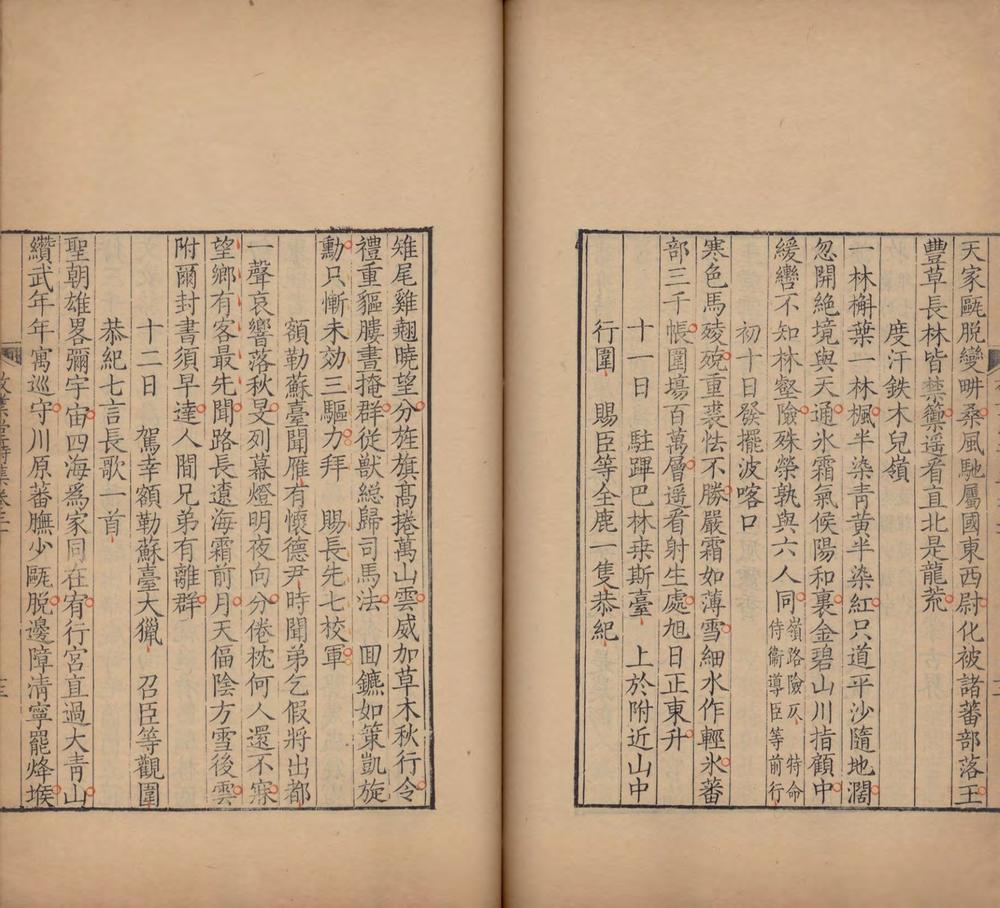 天家甌脱變畊桑風馳屬國東西尉化被諸蕃部落王
豐草長林皆禁籞遥看直北是龍荒
度汗鉄木兒嶺
一林槲葉一林楓半染青黄半染紅只道平沙隨地濶
忽開絶境與天通氷霜氣候陽和裏金碧山川指顧中
緩轡不知林壑險殊榮孰與六人同嶺路險仄特命
侍衞導臣等前行
初十日發擺波喀口
寒色馬䮚䮚重裘怯不勝嚴霜如薄雪細水作輕氷蕃
部三千帳圍塲百萬層遥看射生處旭日正東升
十一日駐蹕巴林桒斯臺上於附近山中
行圍賜臣等全鹿一隻恭紀
雉尾雞翹曉望分旌旗髙捲萬山雲威加草木秋行令
禮重貙膢晝掩群從獸緫歸司馬法囬鑣如策凱旋
勳只慚未効三驅力拜賜長先七校軍
額勒蘇臺聞雁有懷德尹時聞弟乞假將出都
一聲哀響落秋旻列幕燈明夜向分倦枕何人還不寐
望鄉有客最先聞路長遼海霜前月天偪陰方雪後雲
附爾封書須早達人間兄弟有離群
十二日駕幸額勒蘇臺大獵召臣等觀圍
恭紀七言長歌一首
聖朝雄畧彌宇宙四海爲家同在宥行宮直過大青山
纘武年年寓巡守川原蕃膴少甌脱邊障清寧罷烽堠
敬業堂詩集卷三